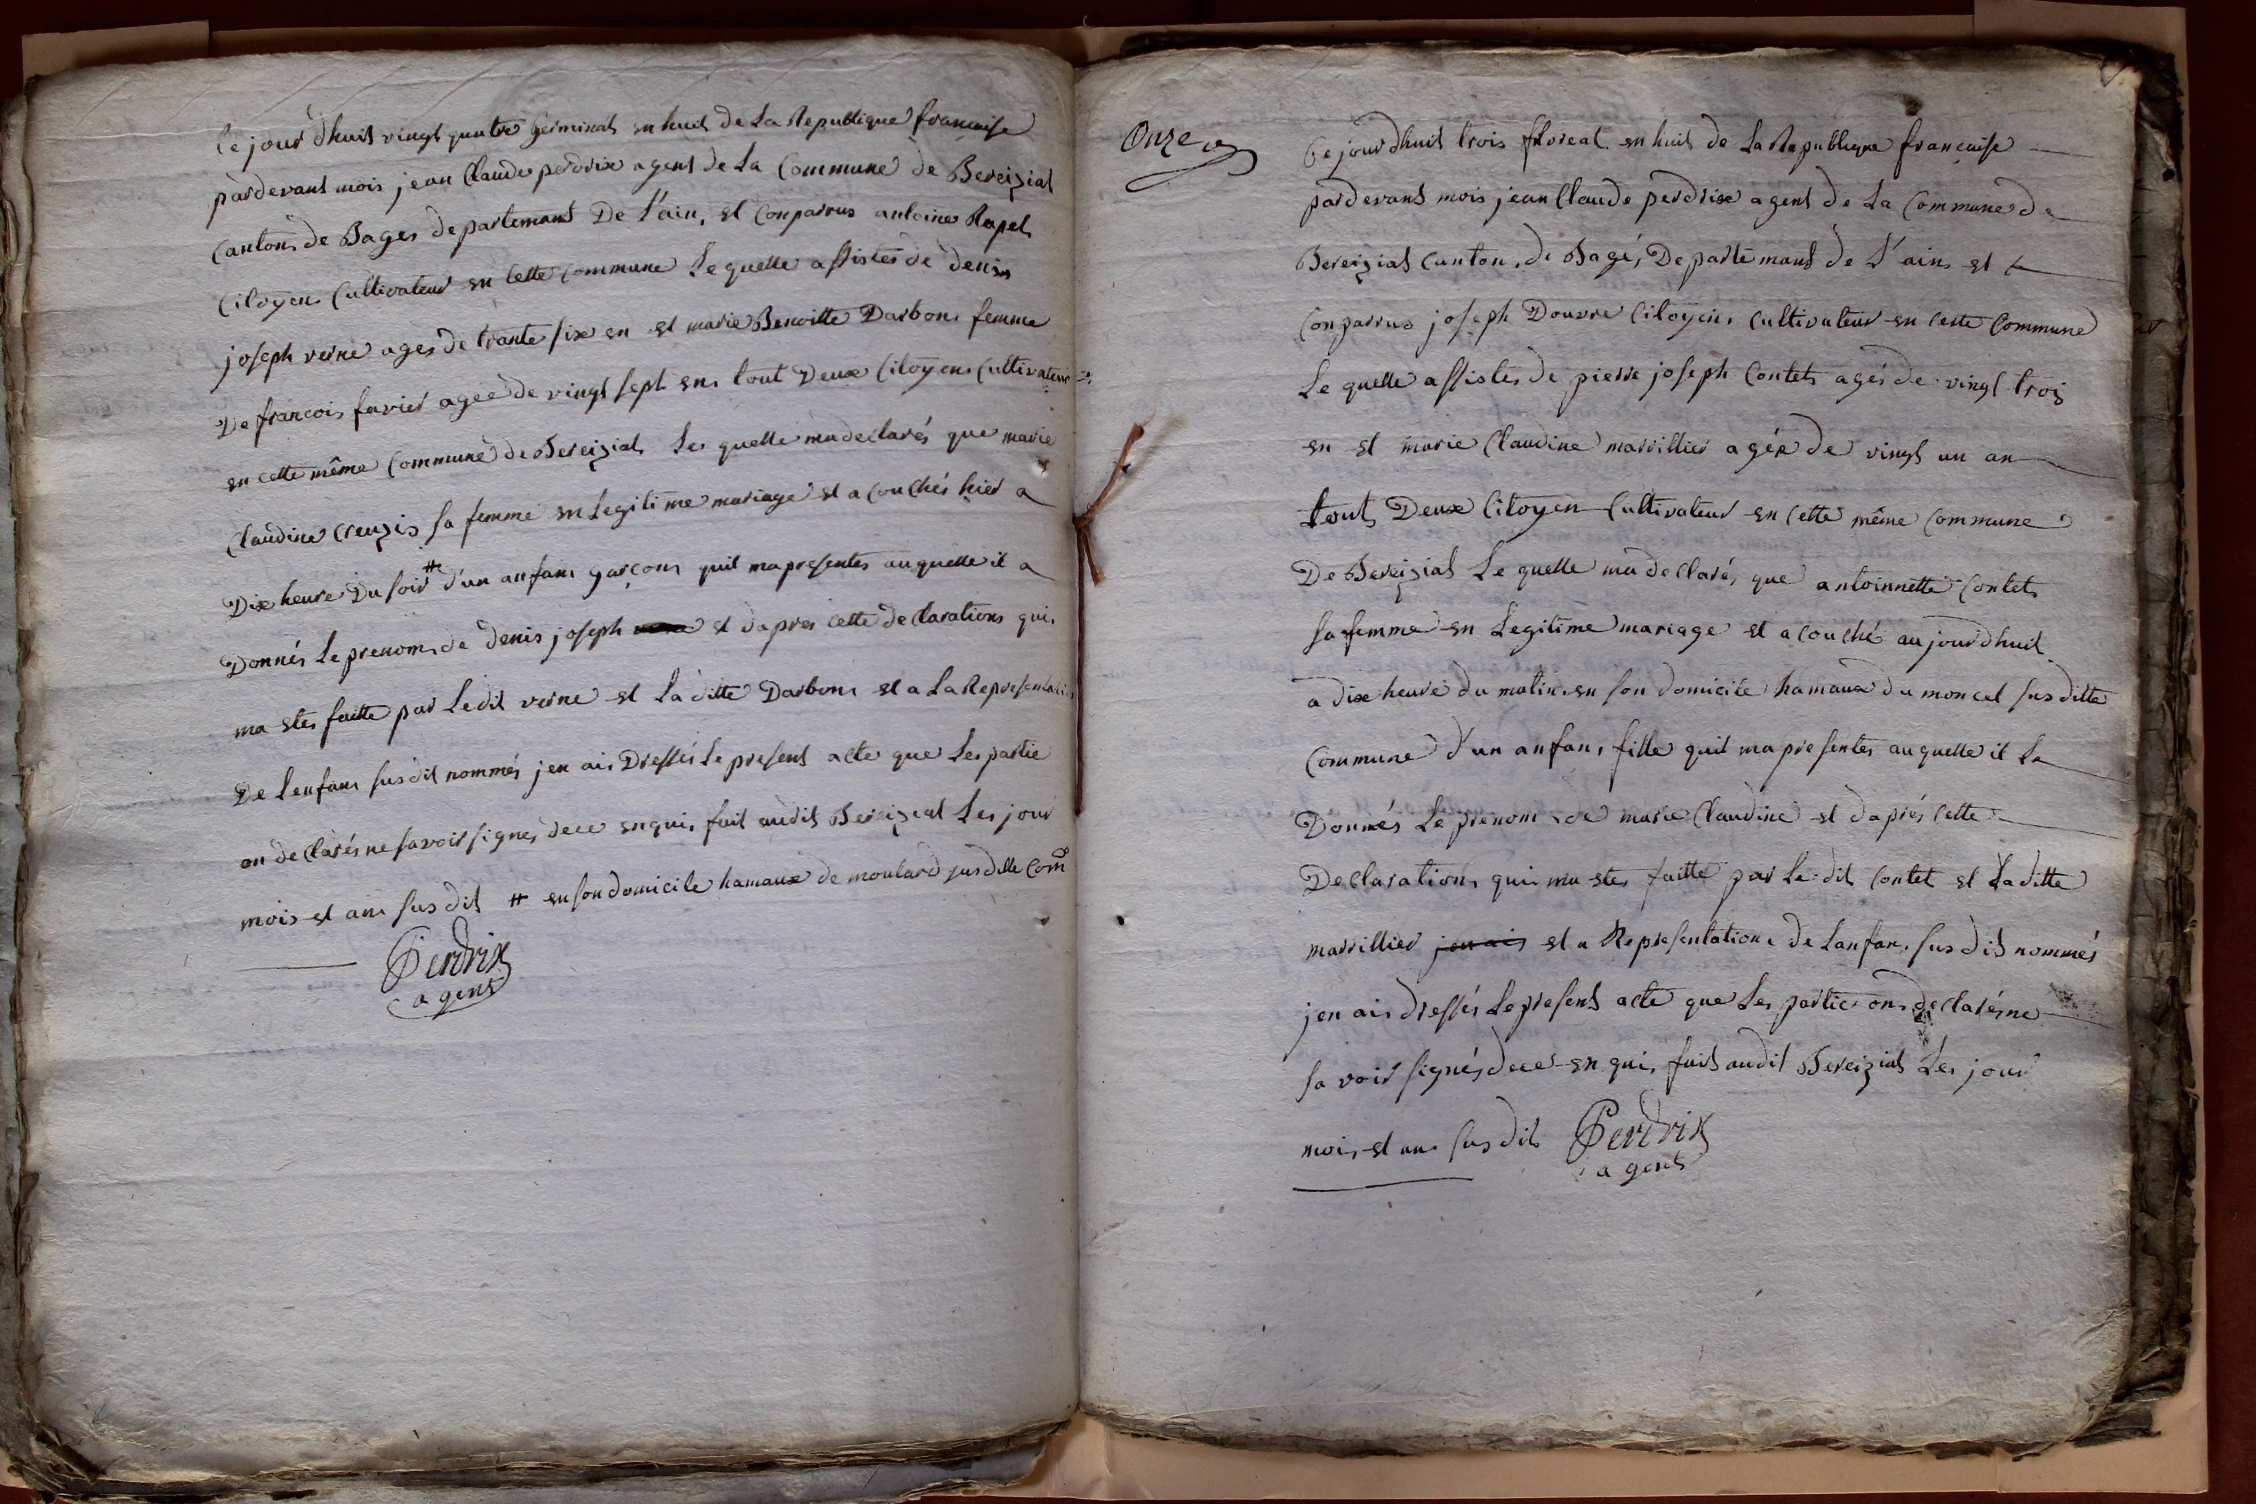 Ce jour dhuit vingt quatre Germinal en huit de La Republique francaise
pardevant mois jean Claude perdrix agent de La Commune de Bereizial
Canton de Bages departement De l'ain, et Conparrus antoine Rapel
Citoyen Cultivateur en Cette Commune Le quelle assistes de denis
joseph verne ages de trante six en et marie Benoitte Darbon femme
De francois favier agée de vingt sept en tout Deux Citoyen Cultivateur
en cette même Commune de Bereizial Les quelle ma declarés que marie
Claudine Creuzis sa femme en Legitime mariage et a couchés hier a
Dix heure Du soir # d'un anfans garçons quil ma presentes auquelle il a
Donnés Le prenoms de denis joseph et dapres cette declarations qui
ma etes faitte par Ledit verne et La ditte Darbon et a La Representation
De Lenfans susdit nommés jen ais Dressés Le present acte que Les partie
on declarés ne savoir signes dece enquis fait audit Bereizial Les jour
mois et an susdit # en son domicile hamaux de moulard susditte Com
Perdrix
agent
Onze
Ce jour dhuit trois floreal en huit de La Republique francaise
pardevant mois jean Claude perdrix agent de La Commune de
Bereizial Canton de Bagé, Departemant de L'ain et
Conparrus joseph Douvre Citoyen Cultivateur en cette Commune
Le quelle assistes de pierre joseph Contet agés de vingt trois
en et marie Claudine marvillier agée de vingt un an
tout Deux Citoyen Cultivateur en cette même Commune
De Bereizial Le quelle ma declarés que antoinnette Contet
sa femme en Legitime mariage et a couché aujourdhuit
a dix heure du matin en son domicile hamaux du moncel susditte
Commune d'un anfans fille quil ma presentes auquelle il La
Donnés Le prenom de marie Claudine et daprés cette
Declarations qui ma etes faitte par Le dit Contet et La ditte
marvillier jen ais et a Representation de Lanfan susdit nommés
jen ais dressés Le present acte que Les partie on declarés ne
savoir signés dece en quis fait audit Bereizial Les jour
mois et an susdit Perdrix
agent